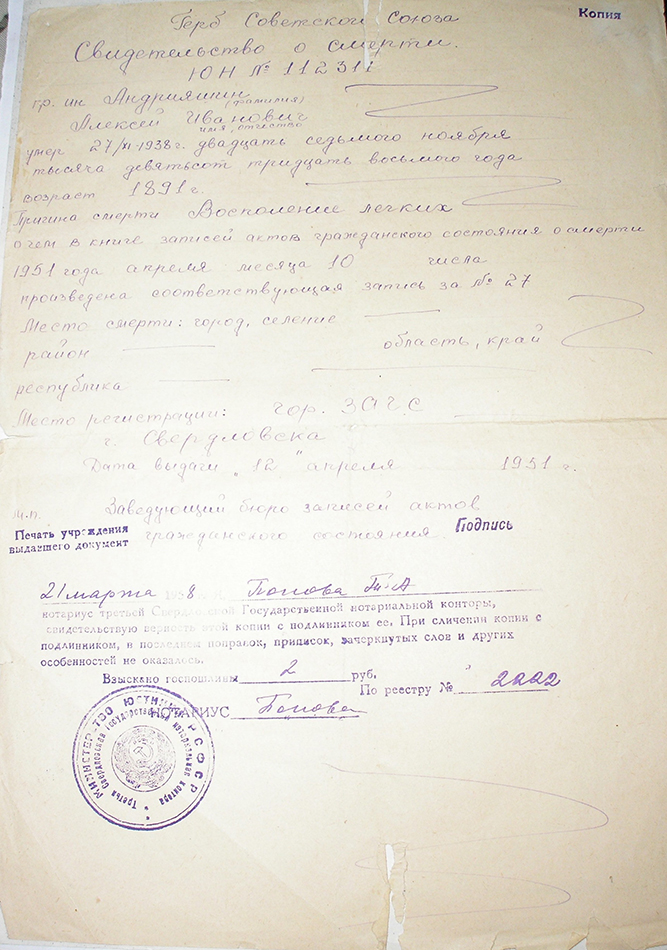 Копия
Герб Советского Союза
Свидетельство о смерти.
ЮН № 112311
гр. ин Андрияшин
(фамилия)
Алексей Иванович
имя, отчество
умер 27/XI-1938 г. двадцать седьмого ноября
тысяча девятьсот тридцать восьмого года
возраст 1891 г.
Причина смерти Восполение легких
о чем в книге записей актов гражданского состояния о смерти
1951 года апреля месяца 10 числа
произведена соответствующая запись за № 27
Место смерти: город, селение
район область, край
республика
Место регистрации: гор. ЗАГС
г. Свердловска
Дата выдачи "12" апреля 1951 г.
М.П. Заведующий бюро записей актов
Печать учреждения выдавшего документ гражданского состояния. Подпись
21 марта 1958 Попова
нотариус третьей Свердловской Государственной нотариальной конторы,
свидетельствую верность этой копии с подлинником ее. При сличении копии с
подлинником, в последнем поправок, приписок, зачеркнутых слов и других
особенностей не оказалось.
Взыскано госпошлины 2 руб.
По реестру № 2002
НОТАРИУС Попова
МИНИСТЕРСТВО ЮСТИЦИИ РСФСР
Третья Свердловская Государственная нотариальная контора